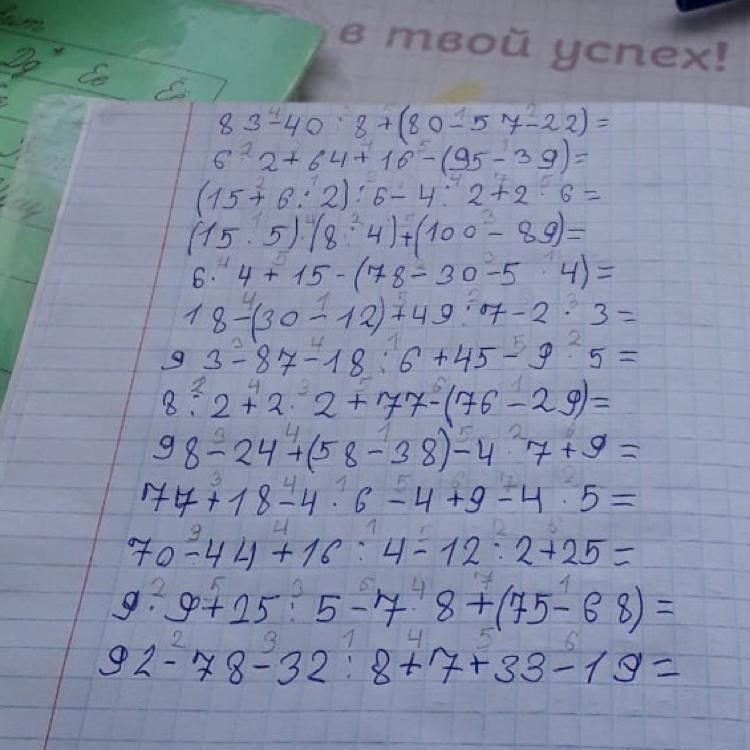 в твой успех!
83-40:8+(80-57-22)=
6:2+64+16-(95-39)=
(15+6:2):6-4:2+2·6=
(15:5)·(8:4)+(100-89)=
6·4+15-(78-30-5·4)=
18-(30-12)+49:7-2·3=
93-87-18:6+45-9·5=
8:2+2·2+77-(76-29)=
98-24+(58-38)-4·7+9=
77+18-4·6-4+9-4·5=
70-44+16:4-12:2+25=
9·9+25:5-7·8+(75-68)=
92-78-32:8+7+33-19=